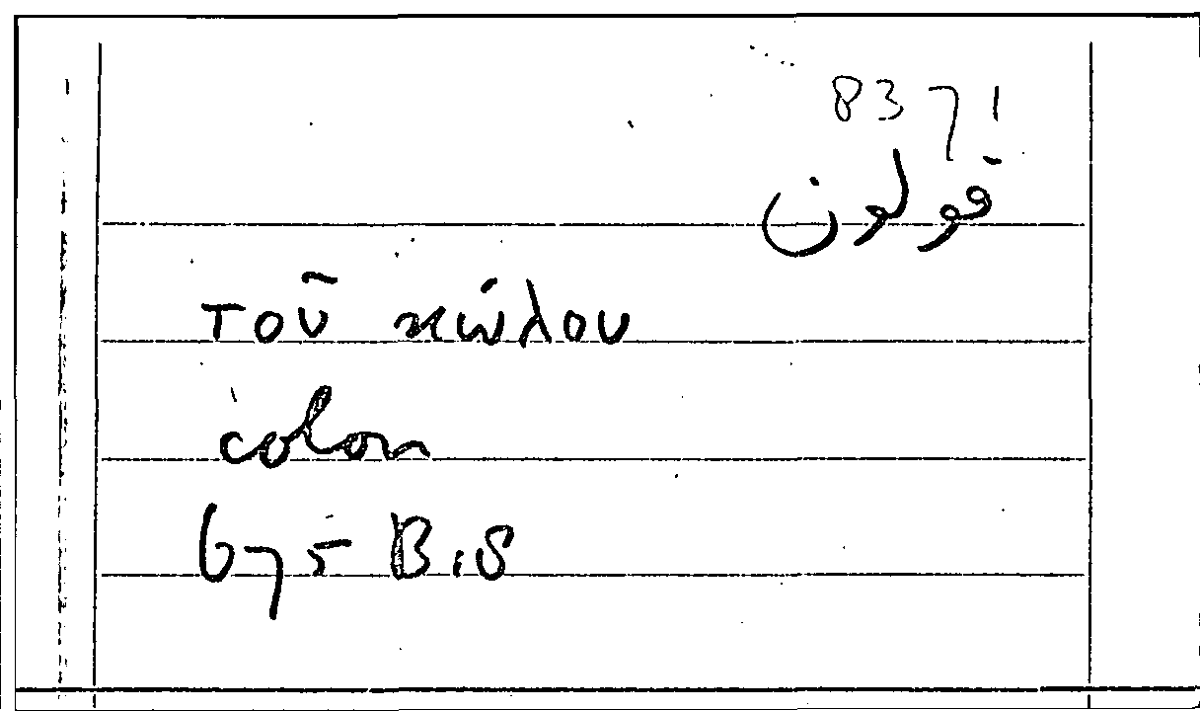 8371
قولون
τοῦ κώλου
colon
675 B.8